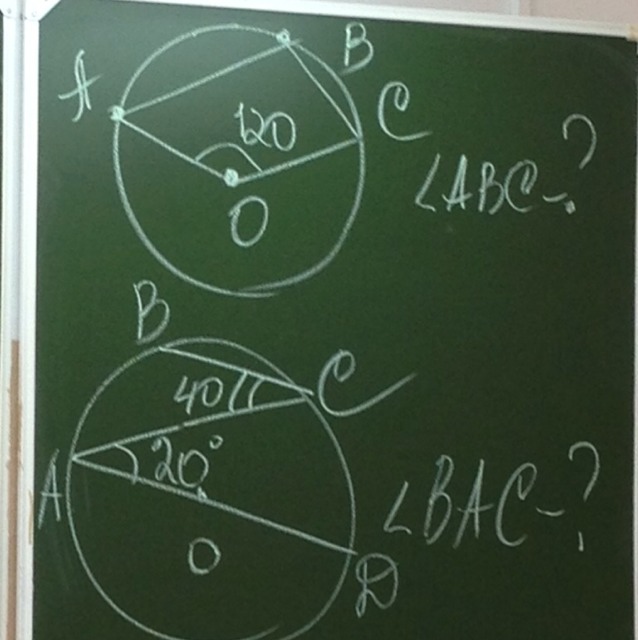 A
B
C
120
O
∠ABC-?
B
C
40
20°
A
∠BAC-?
O
D